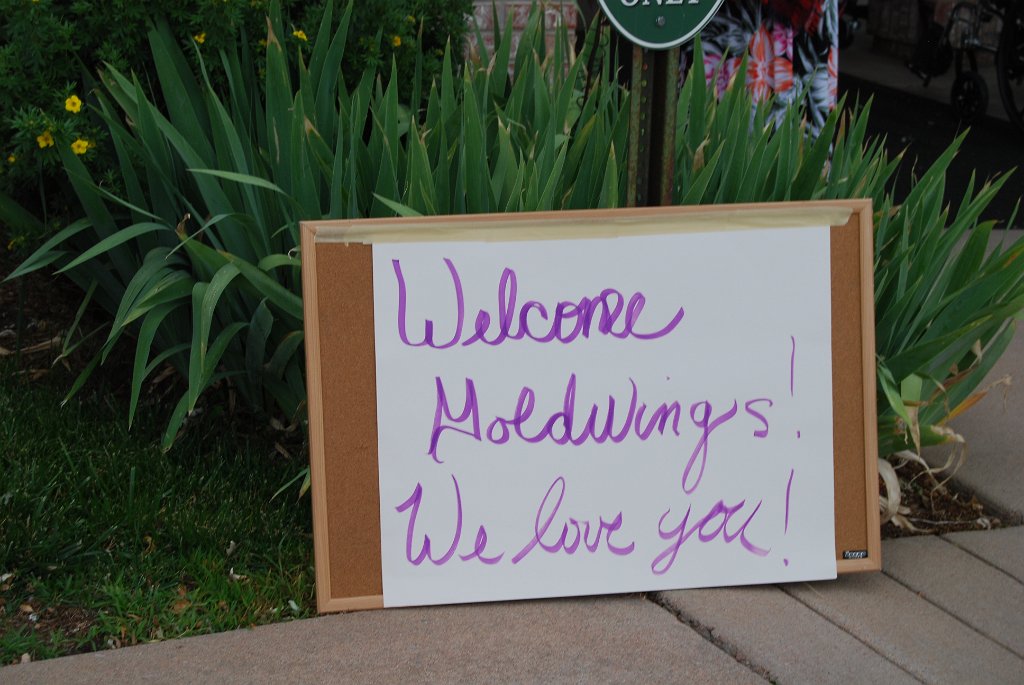 ONLY
Welcome
GoldWings!
We love you!